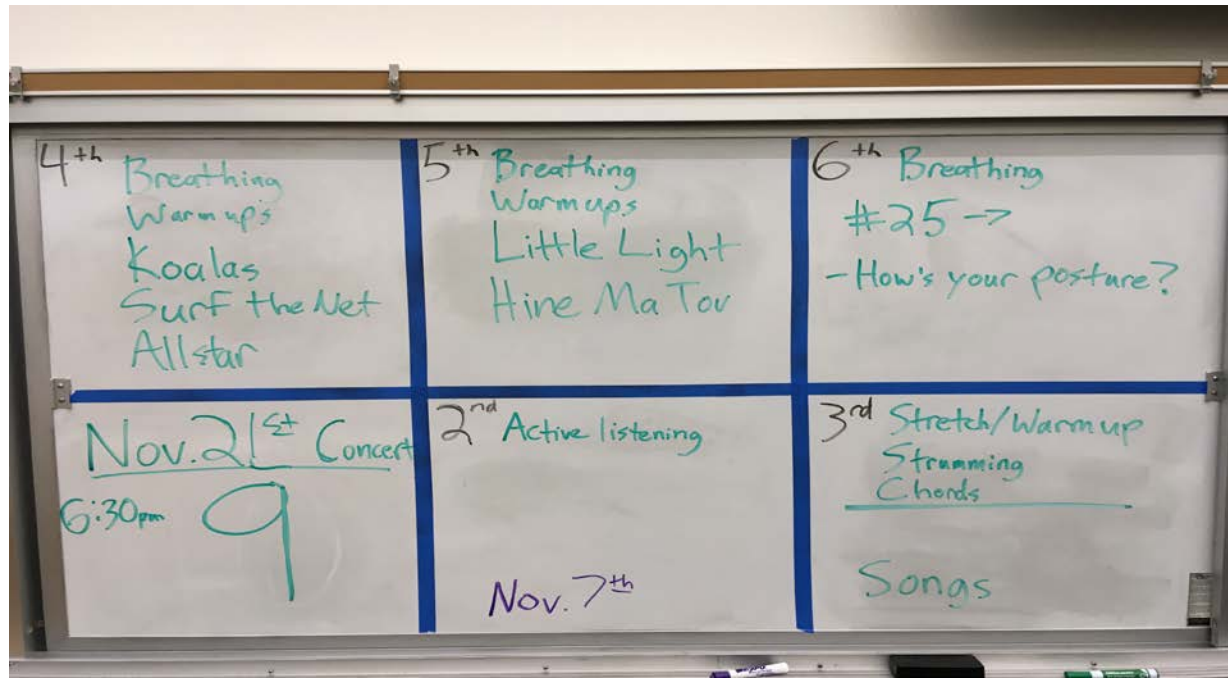 4th Breathing
Warmup's
Koalas
Surf the Net
Allstar
5th Breathing
Warmups
Little Light
Hine Ma Tov
6th Breathing
#25 →
- How's your posture?
Nov. 21st Concert
6:30pm 9
2nd Active listening
Nov. 7th
3rd Stretch/Warmup
Strumming
Chords
Songs